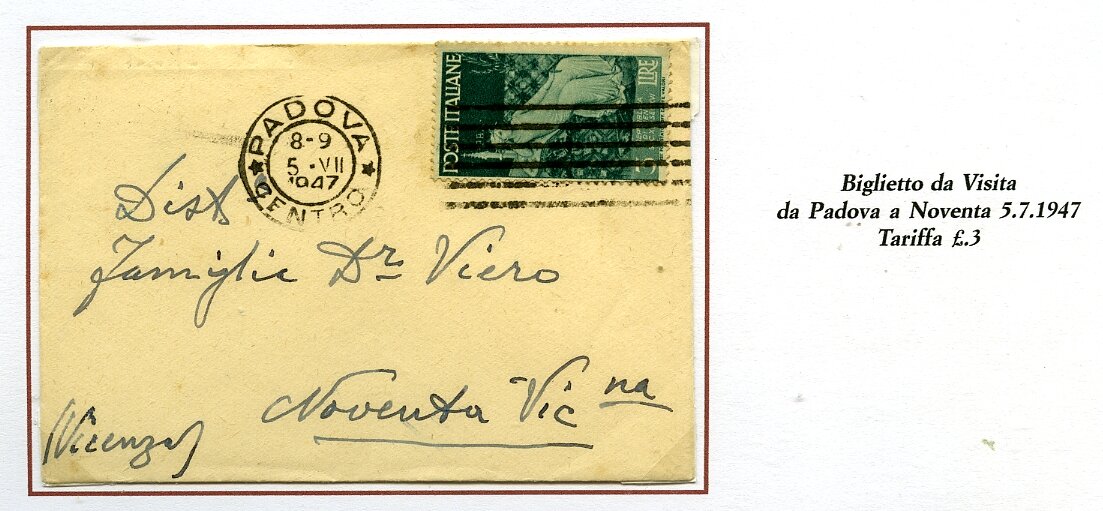 PADOVA
8-9
5 · VII
1947
CENTRO
POSTE ITALIANE
LIRE
3
Dist
Famiglia Dr Viero
Noventa Vic na
(Vicenza)
Biglietto da Visita
da Padova a Noventa 5.7.1947
Tariffa £.3